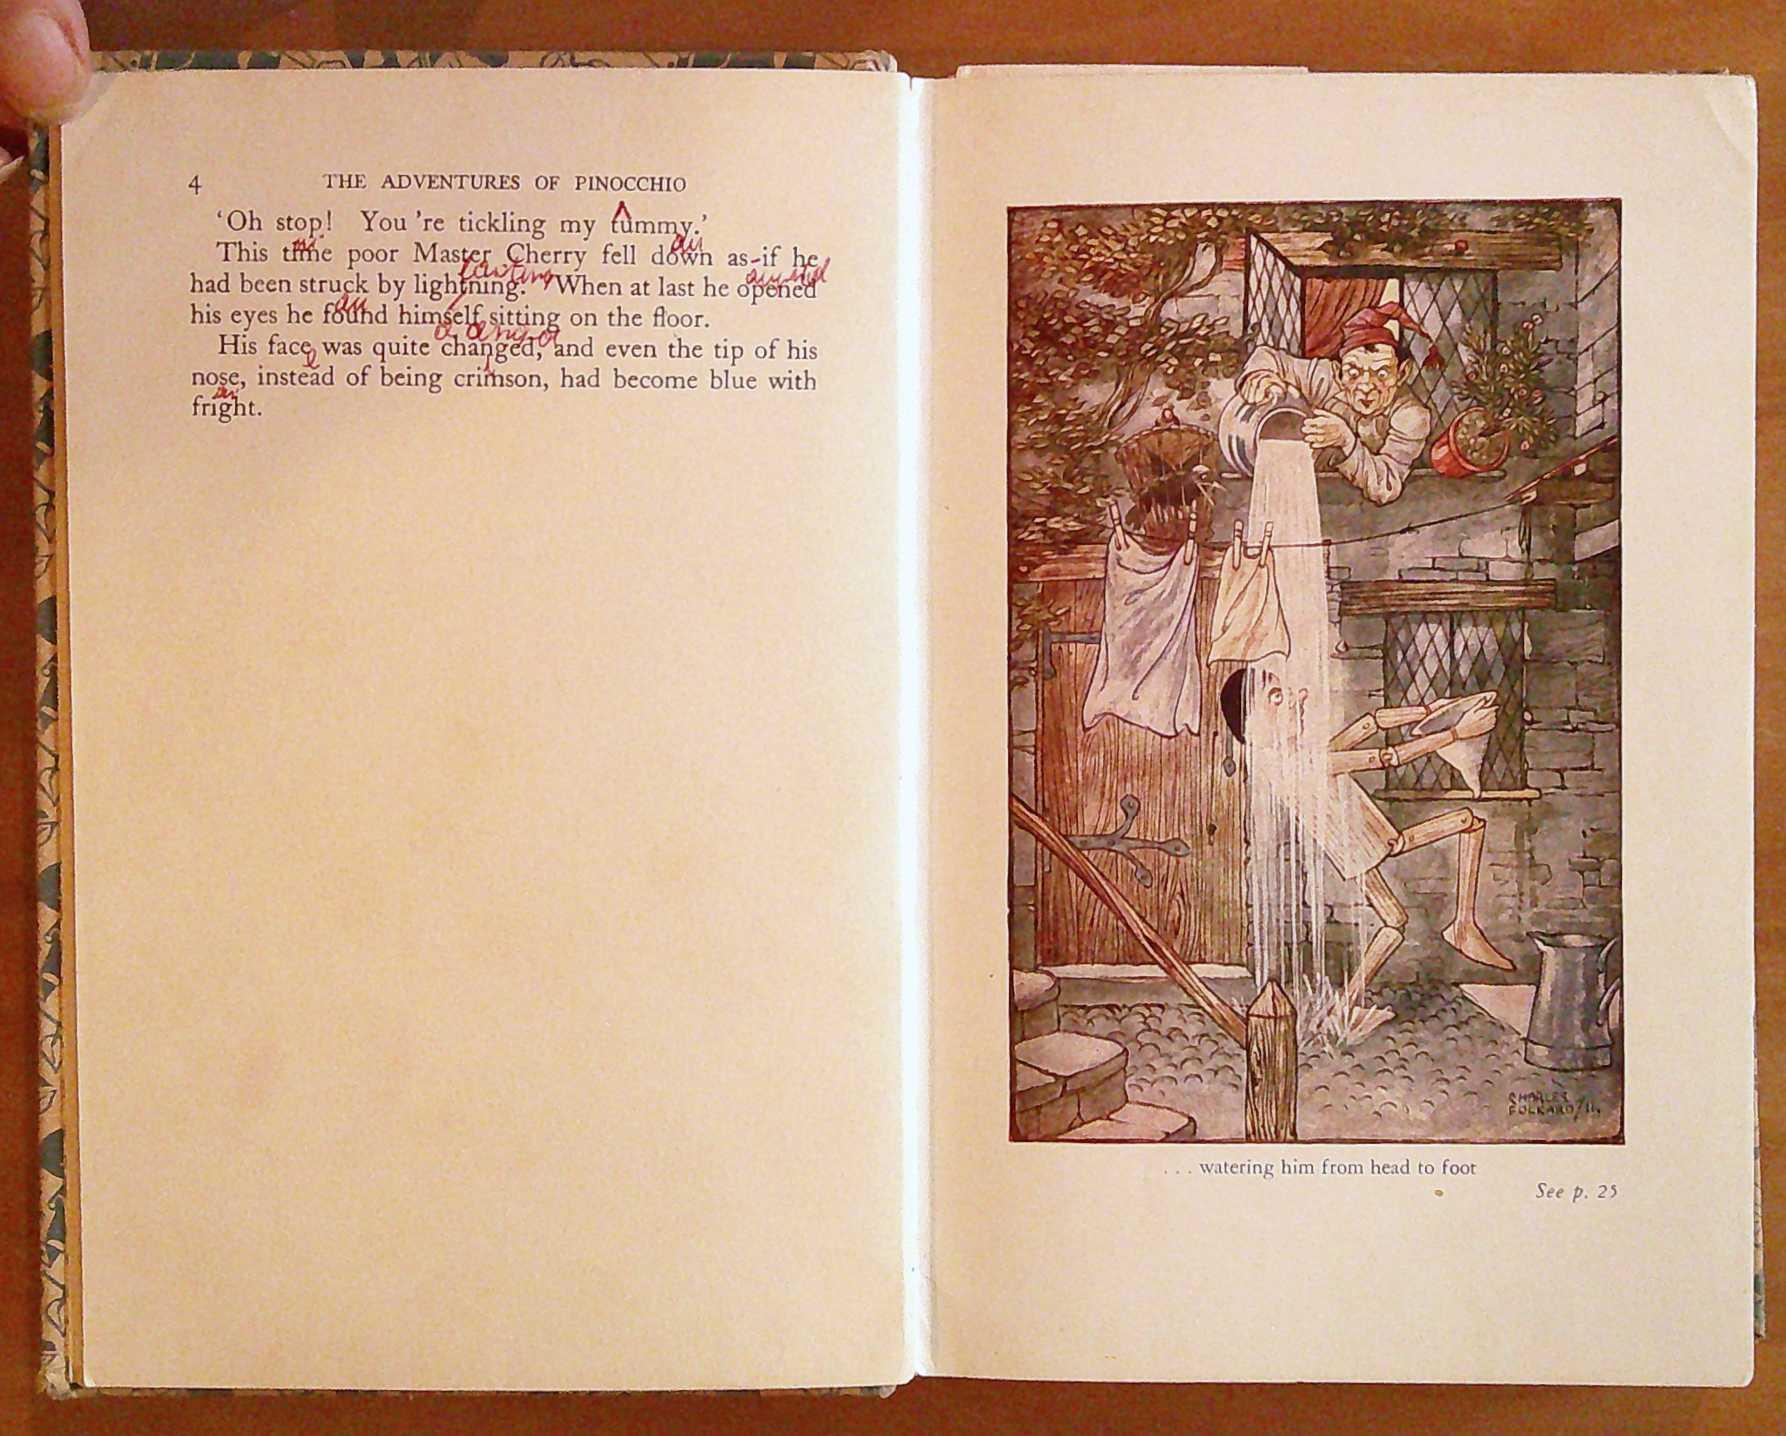 4 THE ADVENTURES OF PINOCCHIO
‘Oh stop! You’re tickling my tummy.’
This time poor Master Cherry fell down as-if he
had been struck by lightning. When at last he opened
his eyes he found himself sitting on the floor.
His face was quite changed, and even the tip of his
nose, instead of being crimson, had become blue with
fright.
CHARLES
FOLKARD/11.
... watering him from head to foot
See p. 25